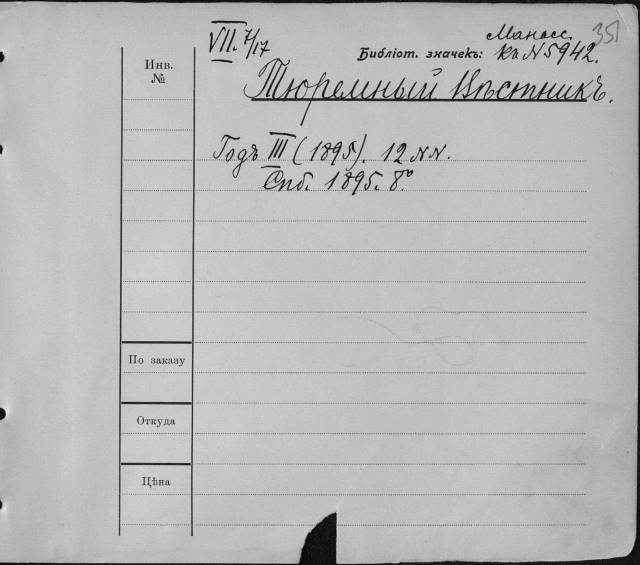 VII. 7/17
Манасс. 351
Библіот. значекъ: Къ N 5942.
Инв.
№
Тюремный Вѣстникъ.
Годъ III (1895). 12 NN.
Спб. 1895. 8°
По заказу
Откуда
Цѣна